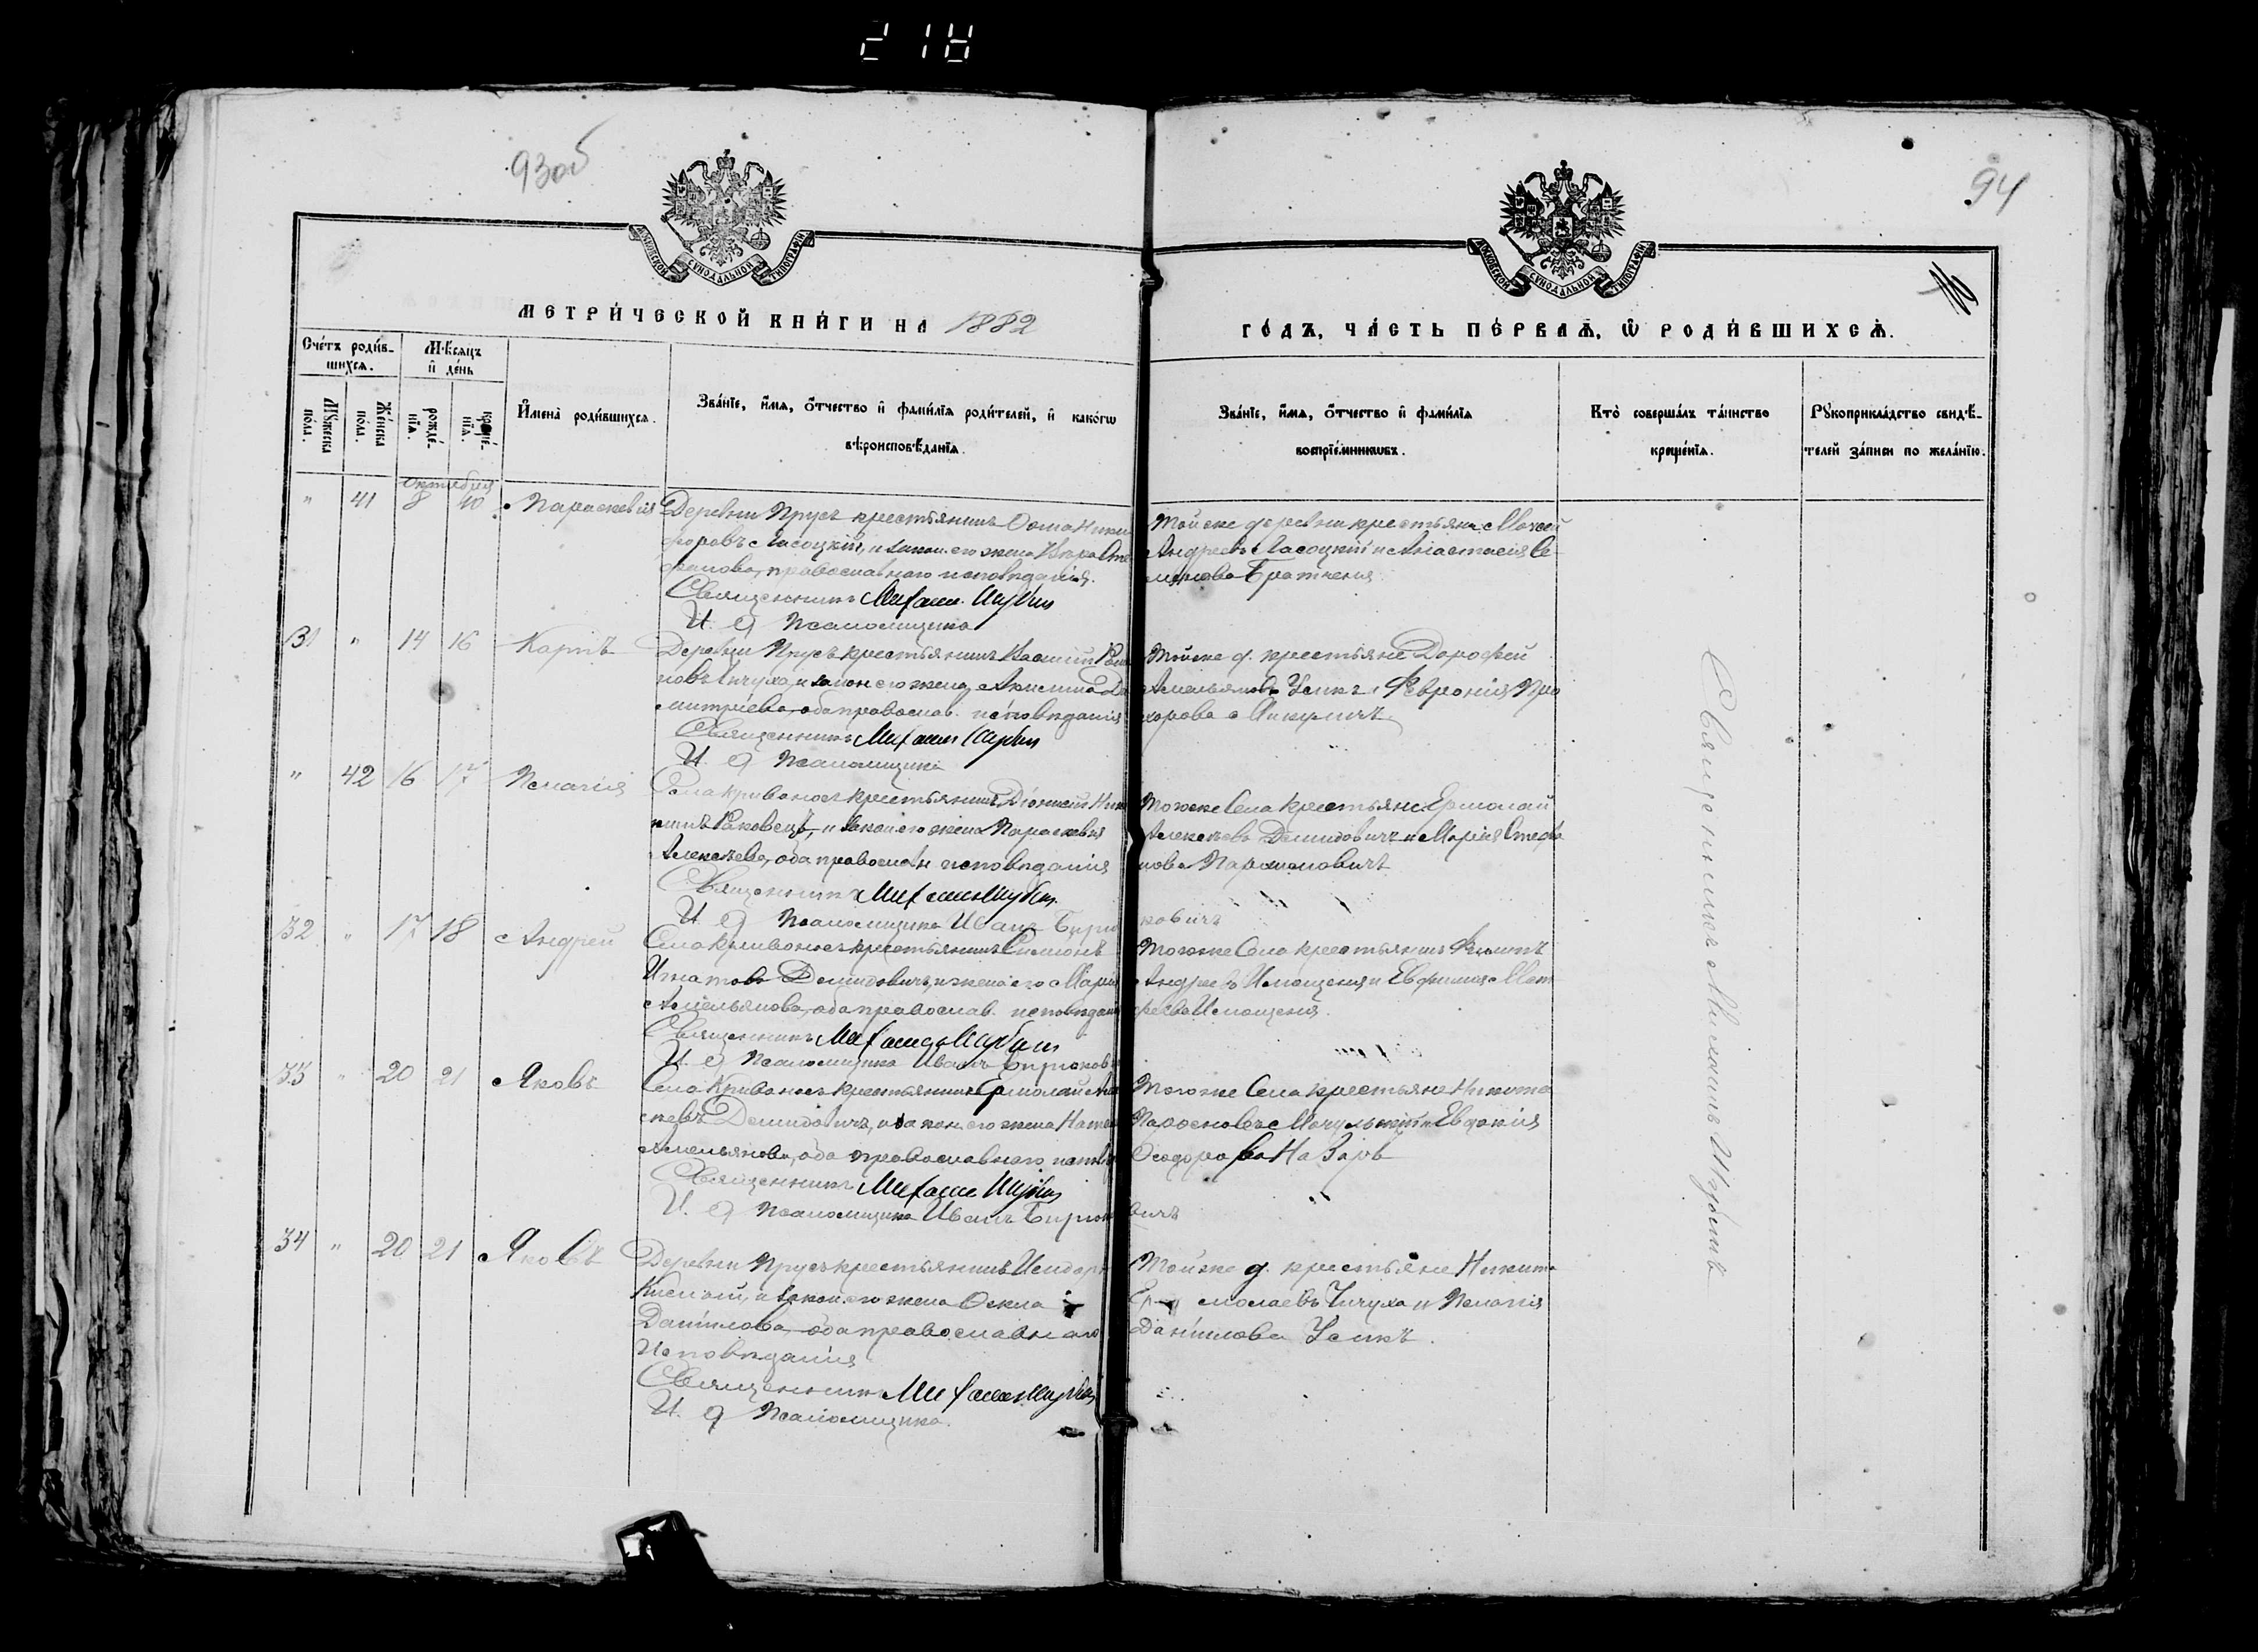 218
93об
94
МОСКОВСКОЙ СѴНОДАЛЬНОЙ ТИПОГРАФІИ
МОСКОВСКОЙ СѴНОДАЛЬНОЙ ТИПОГРАФІИ
МЕТРИ́ЧЕСКОЙ КНИ́ГИ НА 1882
ГО́ДЪ, ЧА́СТЬ ПЕ́РВАѦ, Ѡ РОДИ́ВШИХСѦ.
Сче́тъ роди́в-
шихсѧ.
Мѣсѧцъ
и де́нь
Мꙋжеска по́ла.
Же́нска по́ла.
рожде́-нїѧ.
креще́-нїѧ.
И҆мена̀ роди́вшихсѧ.
Зва́нїе, и҆́мѧ, ѻ҆́тчество и҆ фами́лїѧ роди́телей, и҆ како́гѡ
вѣроисповѣ́данїѧ.
Зва́нїе, и҆́мѧ, ѻ҆́тчество и҆ фами́лїѧ
воспрїе́мникѡвъ.
Кто̀ соверша́лъ та́инство
креще́нїѧ.
Рꙋкоприкла́дство свидѣ́-
телей за́писи по жела́нїю.
Октября
" 41 8 10 Параскевія Деревни Прусъ крестьянинъ Ѳома Ники
форовъ Ласоцкій, и закон. его жена Вѣра Сте
фанова, православнаго исповѣданія.
Священникъ Михаилъ Шубин
И. д. Псаломщика
Тойже деревни крестьяне Моисей
Андреевъ Ласоцкій и Анастасія Се
менова
31 " 14 16 Карпъ Деревни Прусъ крестьянинъ Василій Рома
новъ Чичуха, и закон его жена Акилина Ди
митріева, оба православ. исповѣданія
Священникъ Михаилъ Шубин
И. д. Псаломщика
Тойже д. крестьяне Дорофей
Амельяновъ Усикъ и Февронія Про
хорова
" 42 16 17 Пелагія Села Кривоносъ крестьянинъ Діонисій Ники
Раковецъ, и закон его жена Параскевія
Алексѣева, оба православн исповѣданія
Священникъ Михаилъ Шубин
И. д. Псаломщика Иванъ Бирюковичъ
Тогоже Села крестьяне Ермолай
Алексѣевъ Демидовичъ и Марія Стефа
нова Парамоновичъ
32 " 17 18 Андрей Села Кривоносъ крестьянинъ Симеонъ
Игнатовъ Демидовичъ, и жена его Марія
Амельянова, оба православ. исповѣдан
Священникъ Михаилъ Шубин
И. д. Псаломщика Иванъ Бирюков
Тогоже Села крестьянинъ Филипъ
Андреевъ и Евфимия Мат
фѣева
33 " 20 21 Яковъ Села Кривоносъ крестьянинъ Ермолай Але
ксѣевъ Демидовичъ, и закон. его жена Ната
Амельянова, оба православнаго исповѣд
Священникъ Михаилъ Шубин
И. д. Псаломщика Иванъ Бирюковичъ
Тогоже Села крестьяне Никита
и Евдокія
Ѳеодорова Назаръ
34 " 20 21 Яковъ Деревни Прусъ крестьянинъ Исидоръ
и закон. его жена Ѳекла
Даніилова, оба православнаго
Исповѣданія
Священникъ Михаилъ Шубин
И. д. Псаломщика.
Тойже д. крестьяне Никита
Ермолаевъ Чичуха и Пелагія
Даніилова Усикъ.
Священникъ Михаилъ Шубинъ